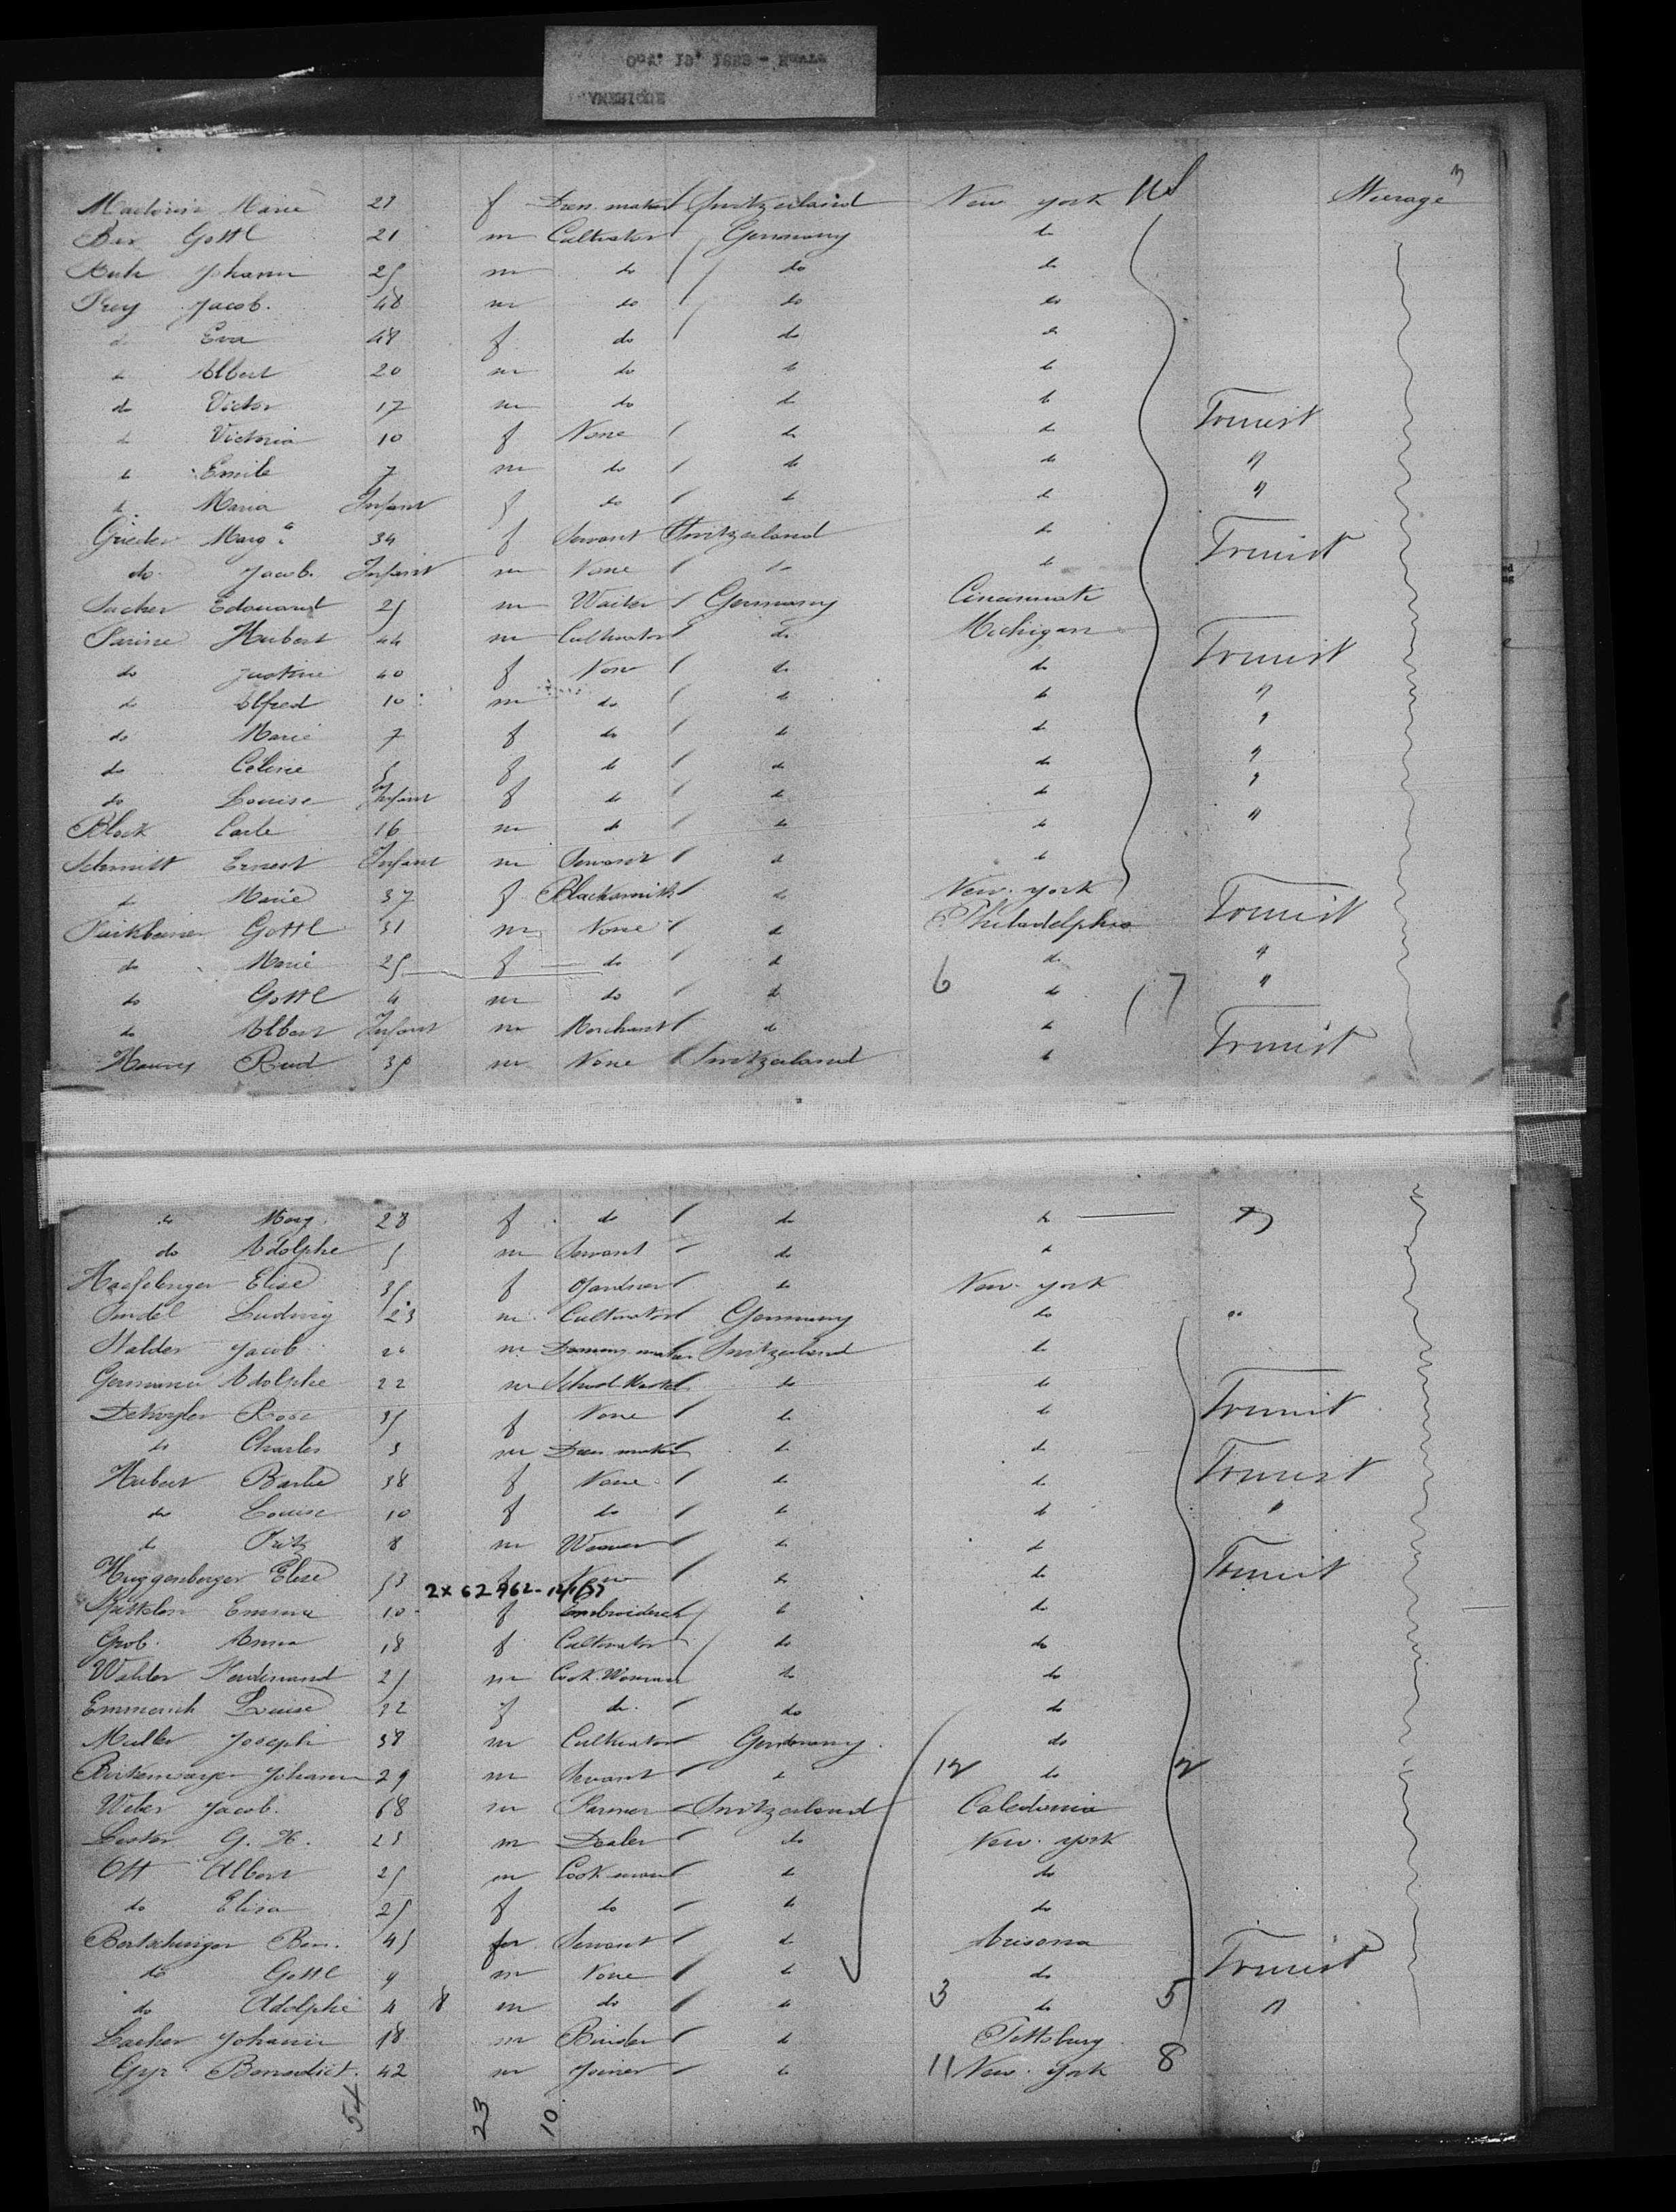 Marie 28 f Dress maker Switzerland New york Steerage
Bär Gottl 21 m Cultivator Germany do
Johann 25 m do do do
Frey Jacob. 48 m do do do
do Eva 48 f do do do
do Albert 20 m do do do
do Victor 17 m do do do Transit
do Victoria 10 f None do do
do Emile 7 m do do do "
do Maria Infant f do do do "
Grieder Marg. 34 f Servant Switzerland do Transit
do Jacob. Infant m None do do
Sacher Edouard 25 m Waiter Germany Cincinnati
Hubert 44 m Cultivator do Michigan Transit
do Justine 40 f None do do "
do Alfred 10 m do do do "
do Marie 7 f do do do "
do Celine 5 f do do do "
do Louise Infant f do do do "
Block Carle 16 m do do do
Schmitt Ernest Infant m Servant do do
do Marie 37 f Blacksmith do New york Transit
Gottl 31 m None do Philadelphia
do Marie 25 f do do do "
do Gottl 4 m do do 6 do 7 "
do Albert Infant m Merchant do do Transit
Rud 35 m None Switzerland do
do Marg. 28 f do do do
do Adolphe 5 m Servant do do
Elise 35 f Gardner do New york
Sindel Ludwig 23 m Cultivator Germany do
Stalder Jacob 20 m Switzerland do
Germanier Adolphe 22 m School Master do do Transit
Rosa 35 f None do do
do Charles 3 m Dress maker do do Transit
Hubert Barbe 38 f None do do
do Louise 10 f do do do "
do Fritz 8 m Weaver do do
Huggenberger Elise 53 f None do do Transit
2x62962-12/1/37
Emma 10 f Embroiderer do do
Grob. Anna 18 f Cultivator do do
Walder Ferdinand 25 m Cook. Woman do do
Emmerich Louise 32 f do do do
Muller Joseph 38 m Cultivator Germany do
Johann 29 m Servant do 12 do 2
Weber Jacob. 68 m Farmer Switzerland Caledonia
G. H. 23 m Dealer do New york
Ott Albert 25 m Cook man do do
do Elisa 25 f do do do
Bertschinger Ben. 45 m Servant do Arisona Transit
do Gottl 9 m None do do
do Adolphe 4 8 m do do 3 do 5 "
Johann 18 m Binder do Pittsburg
Benedict. 42 m Joiner do 11 New york 8
54 23 10